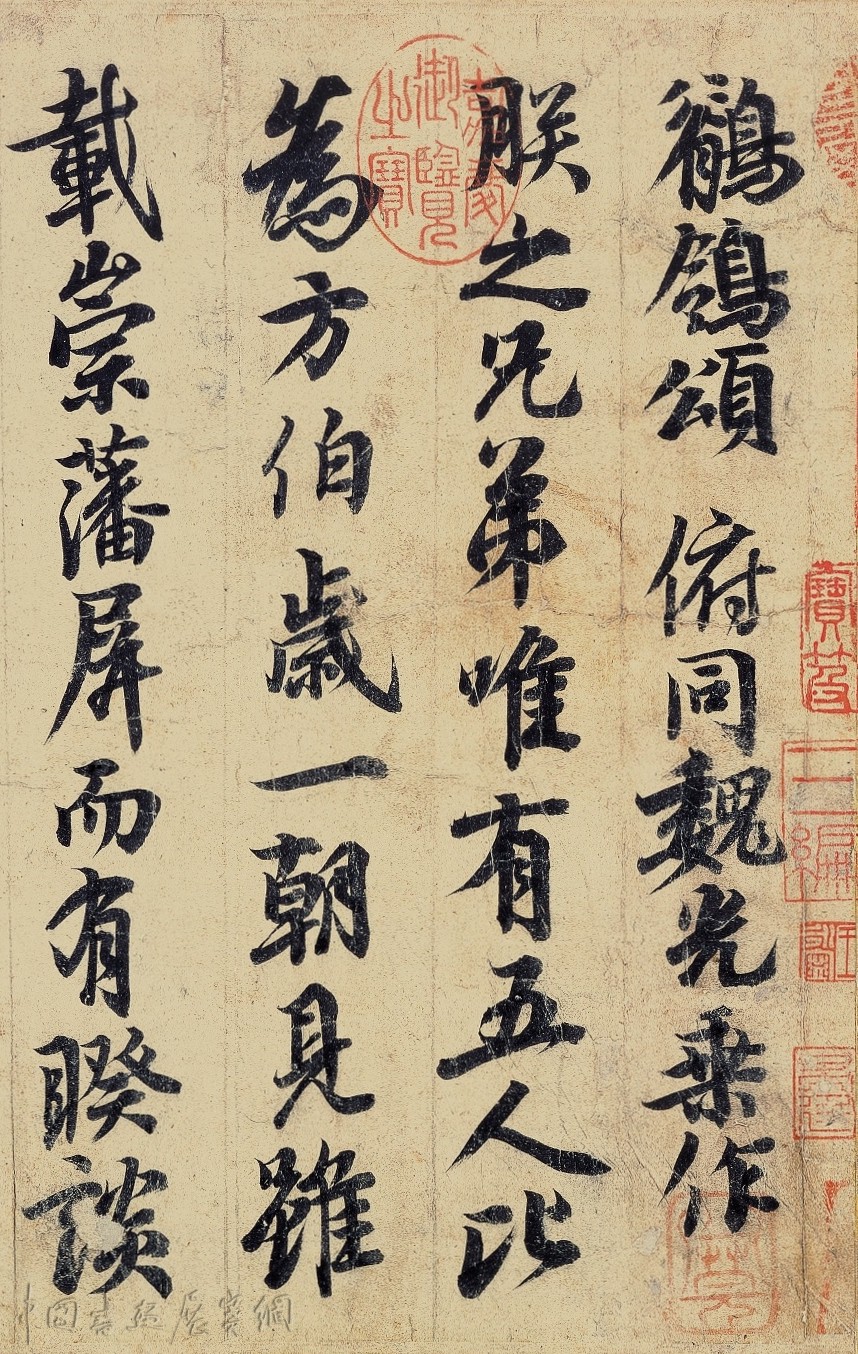 鶺鴒頌 俯同魏光乘作
朕之兄弟唯有五人比
為方伯歲一朝見雖
載崇藩屏而有暌談
嘉慶御覽之寶
中國書法展賽網